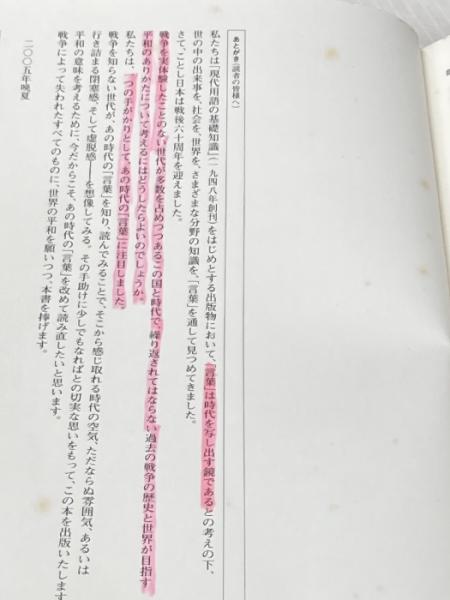 あとがき（読者の皆様へ）
私たちは『現代用語の基礎知識』（一九四八年創刊）をはじめとする出版物において、「言葉」は時代を写し出す鏡であるとの考えの下、
世の中の出来事を、社会を、世界を、さまざまな分野の知識を、「言葉」を通して見つめてきました。
さて、ことし日本は戦後六十周年を迎えました。
戦争を実体験したことのない世代が多数を占めつつあるこの国と時代で、繰り返されてはならない過去の戦争の歴史と世界が目指す
平和のありかたについて考えるにはどうしたらよいのでしょうか。
私たちは、一つの手がかりとして、あの時代の「言葉」に注目しました。
戦争を知らない世代が、あの時代の「言葉」を知り、読んでみることで、そこから感じ取れる時代の空気、ただならぬ雰囲気、あるいは
行き詰まる閉塞感、そして虚脱感――を想像してみる。その手助けに少しでもなればとの切実な思いをもって、この本を出版いたします
平和の意味を考えるために、今だからこそ、あの時代の「言葉」を改めて読み直したいと思います。
戦争によって失われたすべてのものに、世界の平和を願いつつ、本書を捧げます。
二〇〇五年晩夏